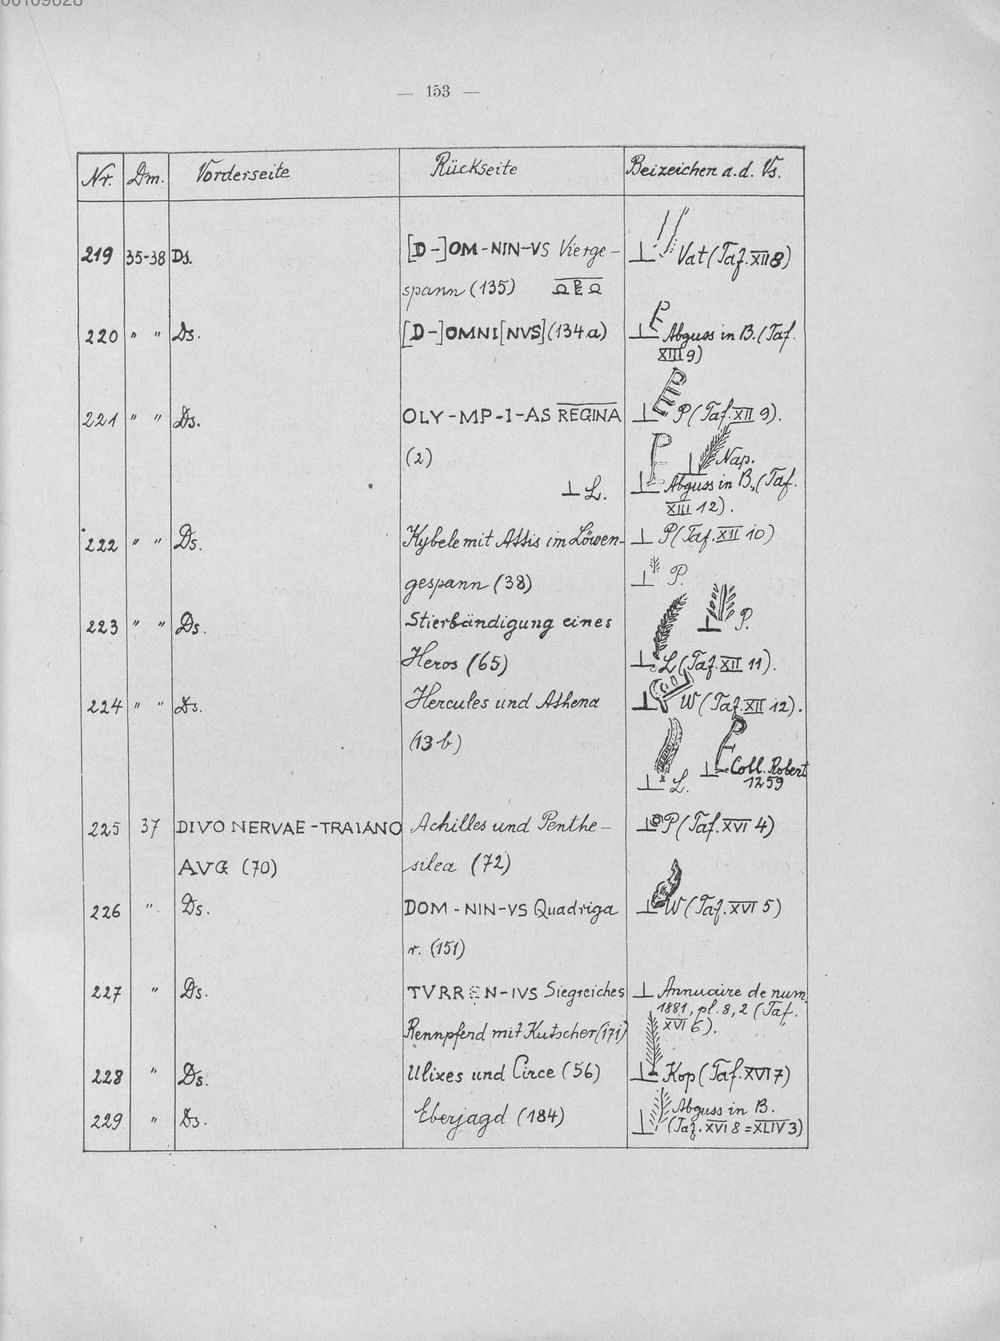 — 153 —
Nr. Dm. Vorderseite Rückseite Beizeichen a.d. Vs.
219 35-38 Ds. [D-]OM-NIN-VS Vierge- Vat (Taf. XII 8)
spann (135)
220 " " Ds. [D-]OMNI[NVS] (134a) Abguss in B. (Taf.
XIII 9)
221 " " Ds. OLY-MP-I-AS REGINA P (Taf. XII 9).
(2) Nap.
L. Abguss in B. (Taf.
XIII 12).
222 " " Ds. Kybele mit Attis im Löwen- P (Taf. XII 10)
gespann (38) P.
223 " " Ds. Stierbändigung eines P.
Heros (65) L (Taf. XII 11).
224 " " Ds. Hercules und Athena W (Taf. XII 12).
(13 b) Coll. Robert
L. 1259
225 37 DIVO NERVAE-TRAIANO Achilles und Penthe- P (Taf. XVI 4)
AVG (70) silea (72)
226 " Ds. DOM-NIN-VS Quadriga W (Taf. XVI 5)
r. (151)
227 " Ds. TVRREN-IVS Siegreiches Annuaire de num.
1881, pl. 8, 2 (Taf.
Rennpferd mit Kutscher (171) XVI 6).
228 " Ds. Ulixes und Circe (56) Kop (Taf. XVI 7)
229 " Ds. Eberjagd (184) Abguss in B.
(Taf. XVI 8 = XLIV 3)